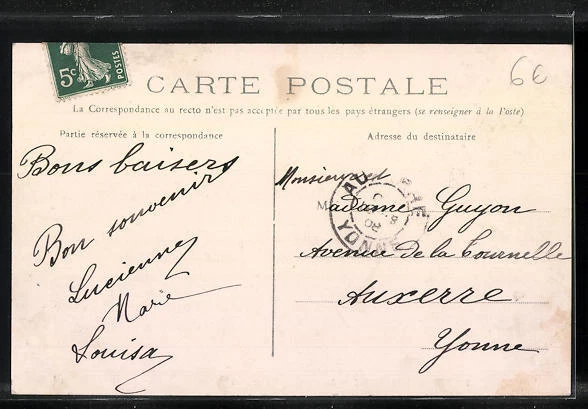 5c
POSTES
6€
CARTE POSTALE
La Correspondance au recto n'est pas acceptée par tous les pays étrangers (se renseigner à la Poste)
Partie réservée à la correspondance
Adresse du destinataire
Bons baisers
Bon souvenir
Lucienne
Marie
Louisa
Monsieur et
Madame Guyon
Avenue de la Tournelle
Auxerre
Yonne
YONNE